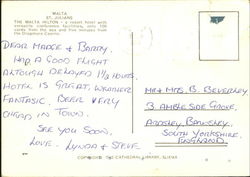 MALTA
ST. JULIANS
THE MALTA HILTON - a resort hotel with
versatile conference facilities, only 100
yards from the sea and five minutes from
the Dragonara Casino.
DEAR MADGE & BARRY.
HAD A GOOD FLIGHT
ALTOUGH DELAYED 1½ HOURS.
HOTEL IS GREAT, WEATHER
FANTASIC, BEER VERY
CHEAP IN TOWN.
SEE YOU SOON.
LOVE. LYNDA & STEVE
MR & MRS. B. BEVERLEY
3. AMBLESIDE GROVE,
ARDSLEY BARNSLEY.
SOUTH YORKSHIRE.
ENGLAND.
COPYRIGHT CATHEDRAL LIBRARY, SLIEMA